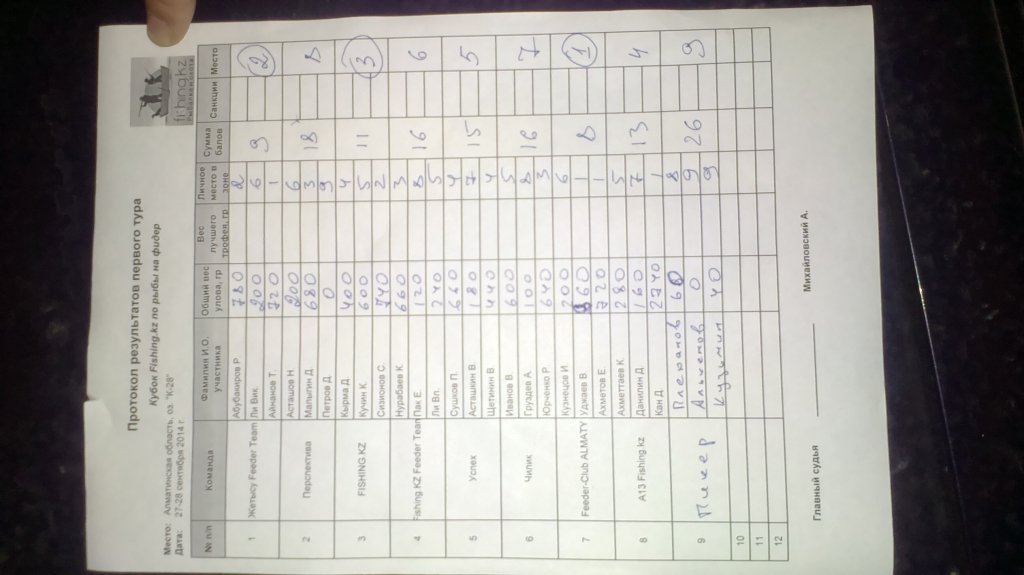 fishing.kz
рыбалкаиохота
Протокол результатов первого тура
Кубок Fishing.kz по рыбы на фидер
Место: Алматинская область, оз. "К-28"
Дата: 27-28 сентября 2014 г.
№ п/п Команда Фамилия И.О. участника Общий вес улова, гр Вес лучшего трофея, гр Личное место в зоне Сумма балов Санкции Место
1 Жетысу Feeder Team Абубакиров Р 780 2 9 2
Ли Вик. 200 6
Айнанов Т. 720 1
2 Перспектива Асташов Н 200 6 18 8
Малыгин Д 680 3
Петров Д 0 9
3 FISHING.KZ Кырма Д. 400 4 11 3
Кучин К. 600 5
Сизионов С. 740 2
4 Fishing.KZ Feeder Team Нурабаев К 660 3 16 6
Пак Е. 120 8
Ли Вл. 240 5
5 Успех Сушков П. 640 4 15 5
Асташкин В 180 7
Щепкин В. 440 4
6 Чилик Иванов В 600 5 16 7
Груздев А 100 8
Юрченко Р 640 3
7 Feeder-Club ALMATY Кузнецов И 200 6 8 1
Уджаев В. 960 1
Ахметов Е 1720 1
8 А13 Fishing.kz Ахметгаев К. 280 5 13 4
Данилин Д. 160 7
Кан Д 2740 1
9 Пикер Плеханов 60 8 26 9
0 9
Кузьмин 40 9
10
11
12
Главный судья Михайловский А.